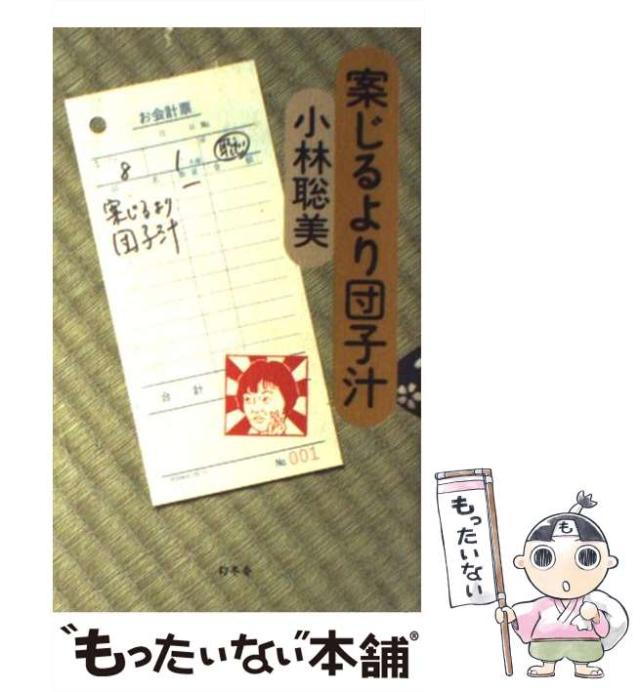 案じるより団子汁
小林聡美
お会計票
月
日
No.
8
1
案じるより
団子汁
合計
No. 001
幻冬舎
"もったいない"本舗®
もったいない
も